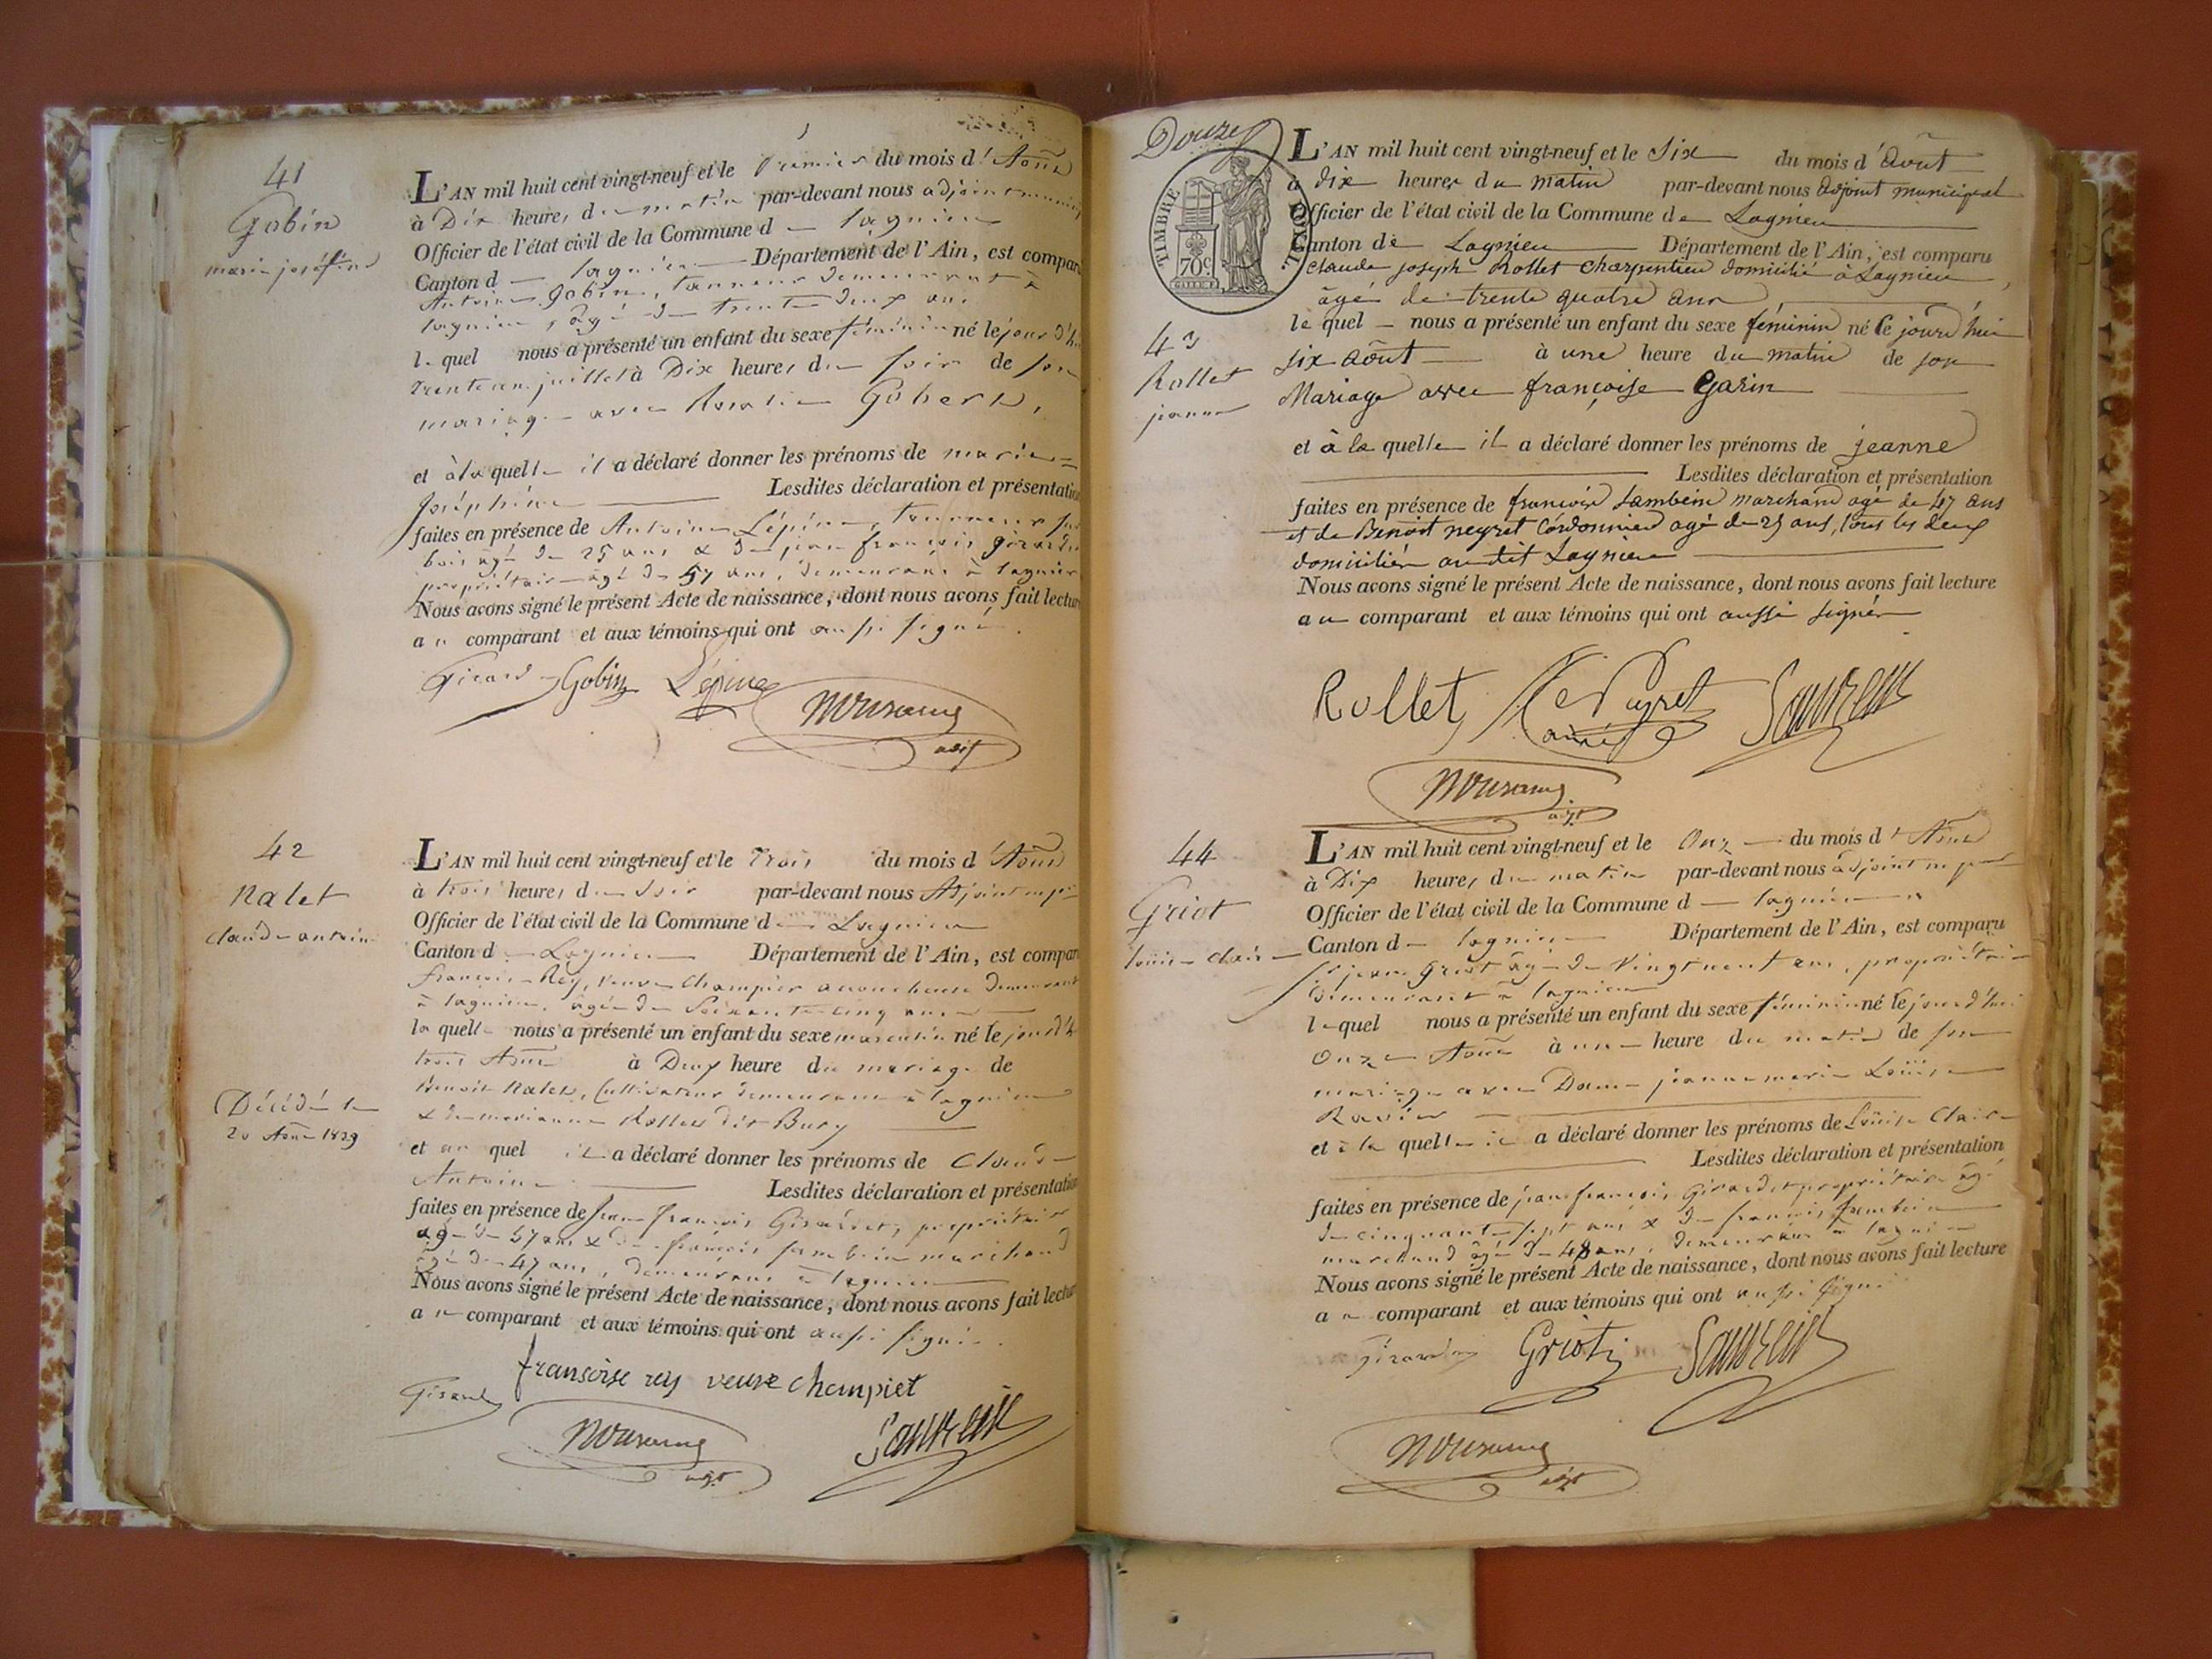 41
Gobin
marie joséfine
L'AN mil huit cent vingt-neuf et le Premier du mois d'Aout
à Dix heures du matin par-devant nous adjoint
Officier de l'état civil de la Commune d lagnieu
Canton d lagnieu Département de l'Ain, est comparu
Antoine Gobin, tanneur demeurant à
lagnieu, âgé de trente deux ans
lequel nous a présenté un enfant du sexe féminin né le jour d'h
trente un juillet à Dix heures du soir de son
mariage avec Rosalie Gobert,
et à la quelle il a déclaré donner les prénoms de marie=
Joséphine Lesdites déclaration et présentation
faites en présence de Antoine Lépine, tourneur sur
bois âgé de 25 ans & de jean françois girardet
propriétaire âgé de 57 ans, demeurant à lagnieu
Nous avons signé le présent Acte de naissance, dont nous avons fait lecture
au comparant et aux témoins qui ont aussi signé.
Girard Gobin Lépine
adjt
42
Nalet
claude antoine
Décédé le
20 Aout 1829
L'AN mil huit cent vingt-neuf et le Trois du mois d'Aout
à trois heures du Soir par-devant nous Adjoint mpal
Officier de l'état civil de la Commune de Lagnieu
Canton d Lagnieu Département de l'Ain, est comparu
françoise Rey, veuve Champier accoucheuse demeurant
à lagnieu, âgée de Soixante cinq ans
la quelle nous a présenté un enfant du sexe masculin né le jourd'h
trois Aout à Deux heure du mariage de
Benoit Nalet, Cultivateur demeurant à lagnieu
& de marianne Rollet dit Bury
et au quel il a déclaré donner les prénoms de Claude
Antoine Lesdites déclaration et présentation
faites en présence de Jean françois Girardet, propriétaire
âgé de 57 ans & de françois Sambein marchand
âgé de 47 ans, demeurant à lagnieu
Nous avons signé le présent Acte de naissance, dont nous avons fait lecture
au comparant et aux témoins qui ont aussi signé.
fransoise rey veuve champiet
Girard
adjt
Douze
TIMBRE ROYAL
70c
43
Rollet
jeanne
L'AN mil huit cent vingt-neuf et le Six du mois d'Août
à dix heures du matin par-devant nous adjoint municipal
Officier de l'état civil de la Commune de Lagnieu
Canton de Lagnieu Département de l'Ain, est comparu
Claude joseph Rollet charpentier domicilié à Lagnieu,
âgé de trente quatre ans
le quel nous a présenté un enfant du sexe féminin né le jourd'hui
six août à une heure du matin de son
Mariage avec françoise Garin
et à la quelle il a déclaré donner les prénoms de jeanne
Lesdites déclaration et présentation
faites en présence de françois Sambein marchand agé de 47 ans
et de Benoit neyret Cordonnier agé de 25 ans, tous les deux
domiciliés au dit Lagnieu
Nous avons signé le présent Acte de naissance, dont nous avons fait lecture
au comparant et aux témoins qui ont aussi signés
Rollet
adjt
44
Griot
louise claire
L'AN mil huit cent vingt-neuf et le Onze du mois d'Aout
à Dix heures du matin par-devant nous adjoint mpal
Officier de l'état civil de la Commune d lagnieu
Canton d lagnieu Département de l'Ain, est comparu
Sr jean Griot âgé de Vingt neuf ans, propriétaire
demeurant à lagnieu
lequel nous a présenté un enfant du sexe féminin né le jourd'hui
Onze Aout à une heure du matin de son
mariage avec Dame jeanne marie Louise
Ravier
et à la quelle il a déclaré donner les prénoms de Louise Claire
Lesdites déclaration et présentation
faites en présence de jean françois Girardet propriétaire âgé
de cinquante sept ans & de françois Sambein
marchand âgé de 48 ans, demeurant à lagnieu
Nous avons signé le présent Acte de naissance, dont nous avons fait lecture
au comparant et aux témoins qui ont aussi signé.
Girard Griot
adjt